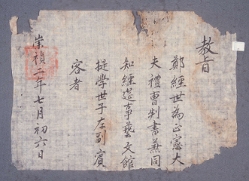 教旨
鄭經世為正憲大
夫禮曹判書兼同
知經筵事藝文館
提學世子左副賓
客者
崇禎二年七月初六日